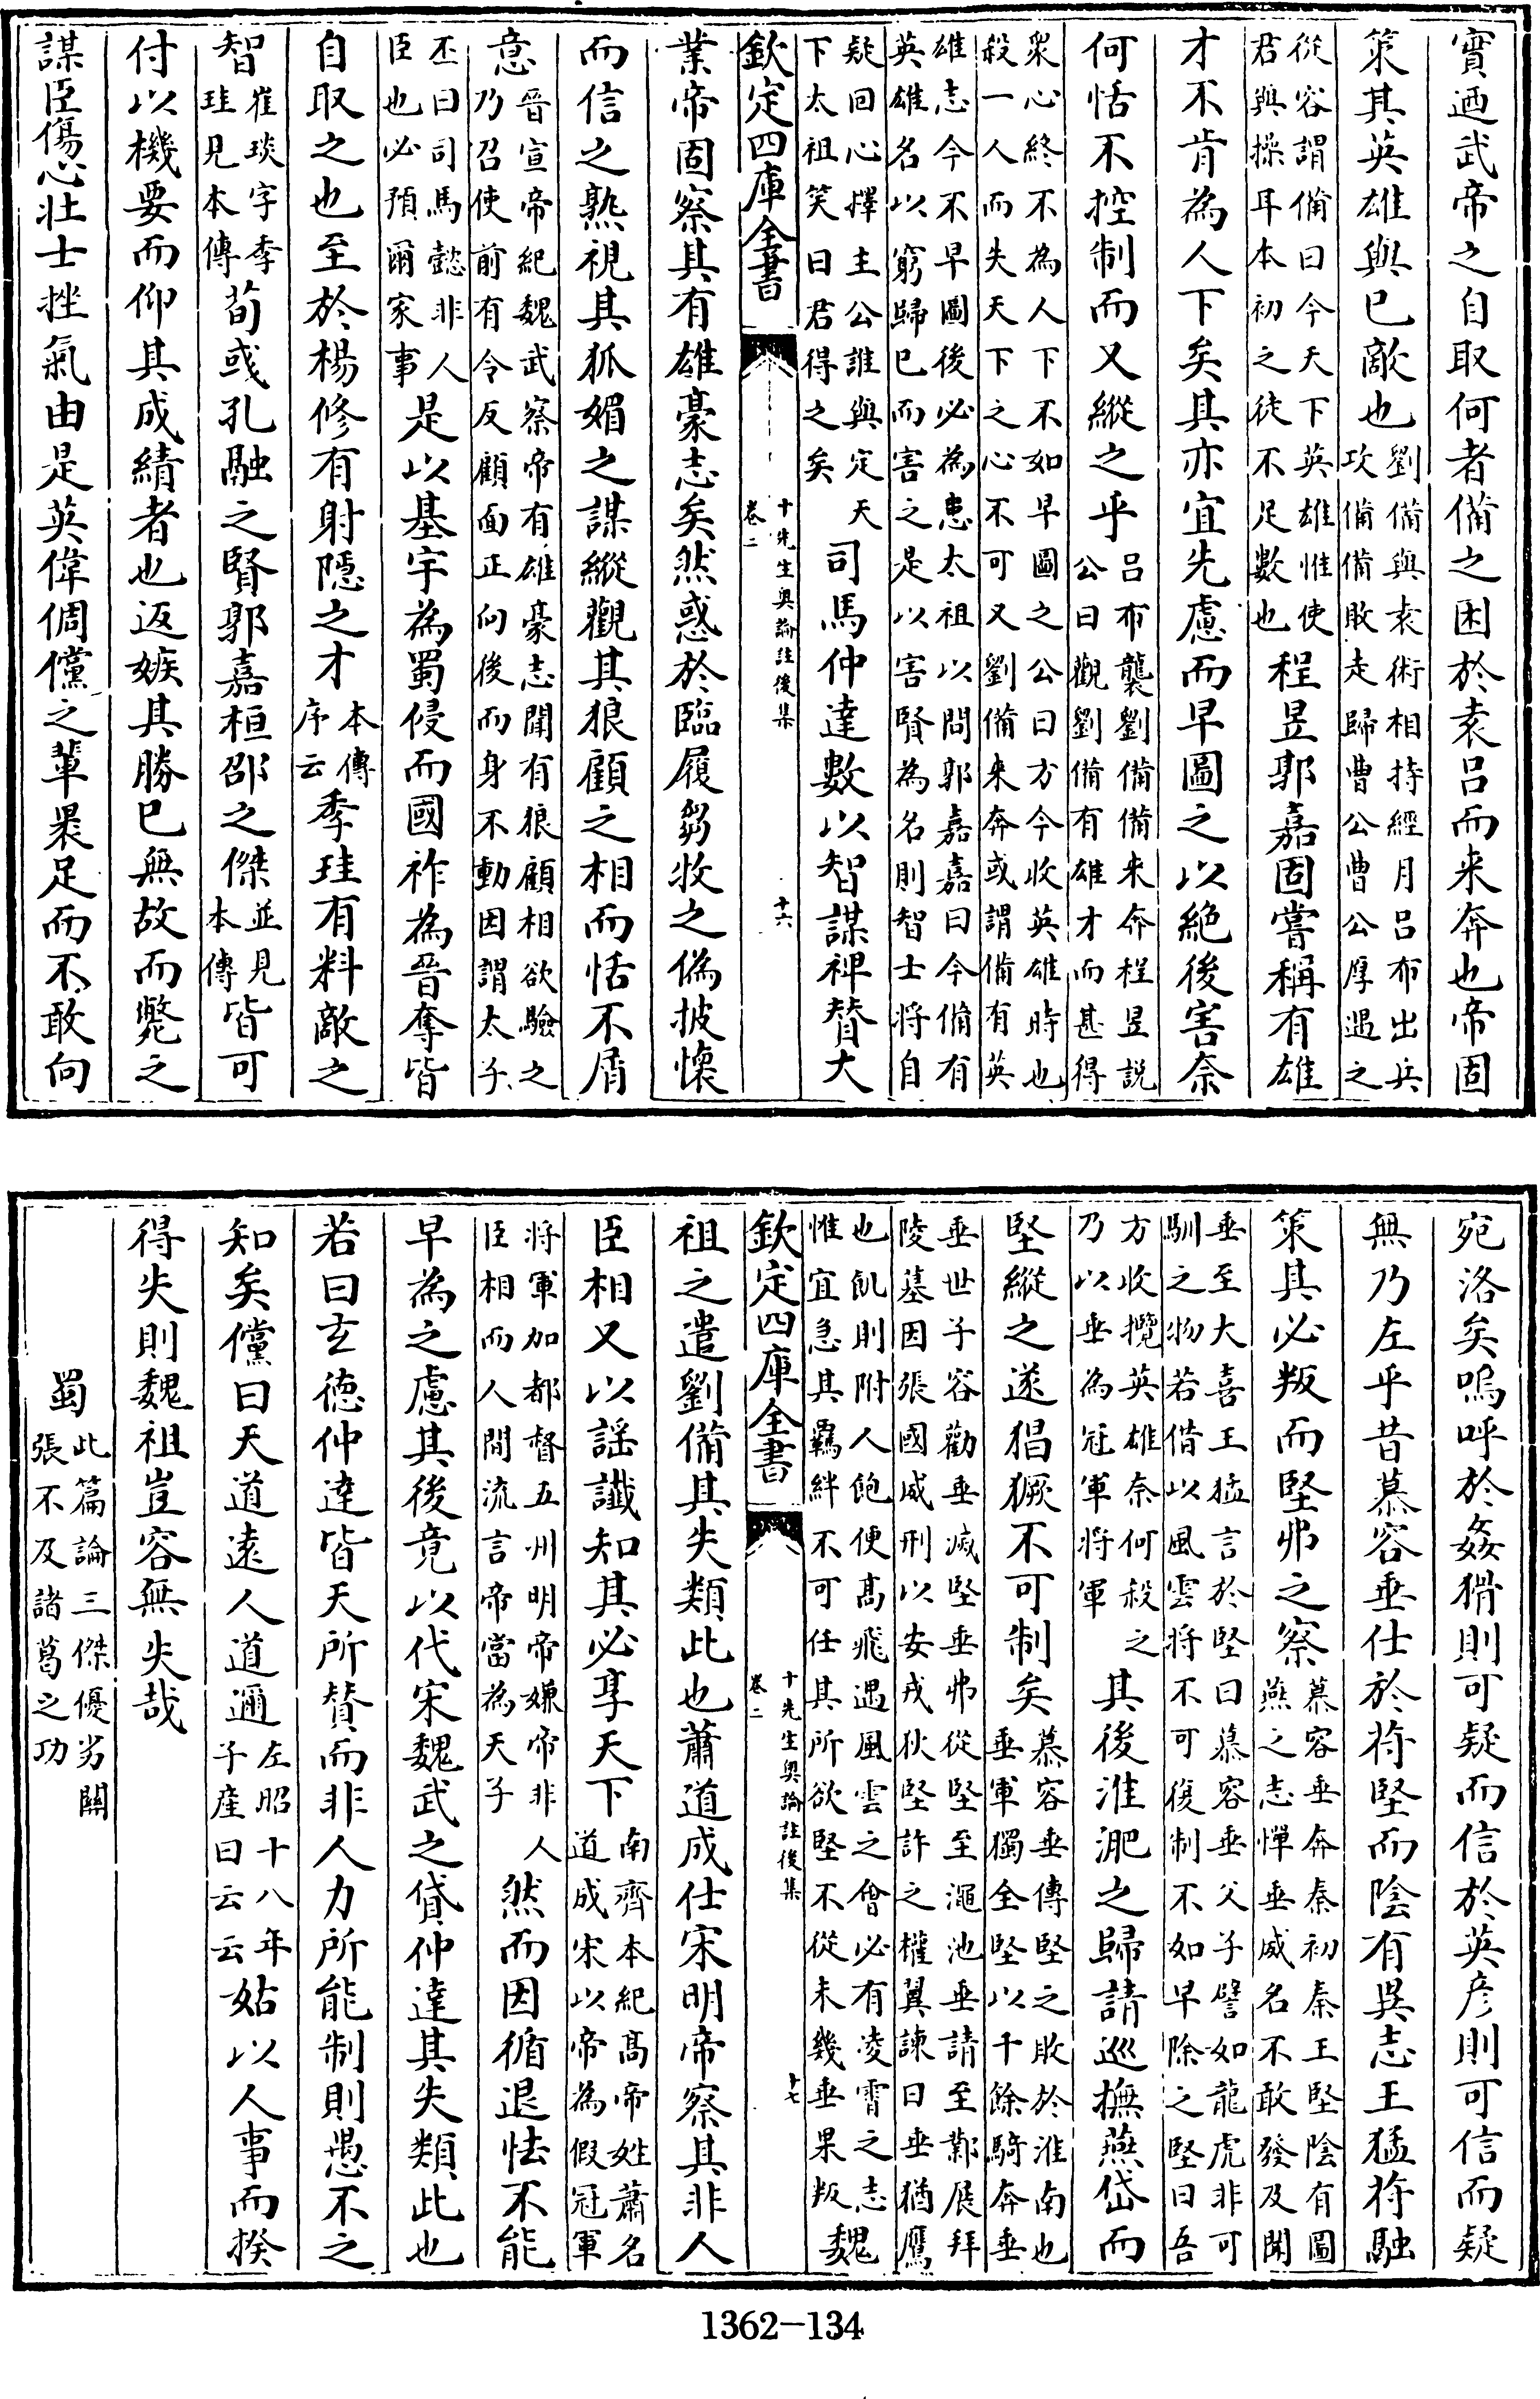 實迺武帝之自取何者備之困於袁呂而来奔也帝固
策其英雄與已敵也劉備與袁術相持經月呂布出兵攻備備敗走歸曹公曹公厚遇之
從容謂備曰今天下英雄惟使君與操耳本初之徒不足數也程昱郭嘉固嘗稱有雄
才不肯為人下矣其亦宜先慮而早圖之以絶後害奈
何恬不控制而又縱之乎呂布襲劉備備来奔程昱説公曰觀劉備有雄才而甚得
衆心終不為人下不如早圖之公曰方今收英雄時也殺一人而失天下之心不可又劉備来奔或謂備有英
雄志今不早圖後必為患太祖以問郭嘉嘉曰今備有英雄名以窮歸已而害之是以害賢為名則智士將自
疑回心擇主公誰與定天下太祖笑曰君得之矣司馬仲達數以智謀裨賛大
欽定四庫全書 十先生奥論註後集 卷二 十六
業帝固察其有雄豪志矣然惑於臨履芻牧之偽披懷
而信之熟視其狐媚之謀縱觀其狼顧之相而恬不屑
意晉宣帝紀魏武察帝有雄豪志聞有狼顧相欲驗之乃召使前有令反顧面正向後而身不動因謂太子
丕曰司馬懿非人臣也必預爾家事是以基宇為蜀侵而國祚為晉奪皆
自取之也至於楊修有射隱之才本傳序云季珪有料敵之
智崔琰字季珪見本傳荀彧孔融之賢郭嘉桓邵之傑並見本傳皆可
付以機要而仰其成績者也返嫉其勝已無故而斃之
謀臣傷心壯士挫氣由是英偉倜儻之輩裹足而不敢向
宛洛矣嗚呼於姦猾則可疑而信於英彦則可信而疑
無乃左乎昔慕容垂仕於苻堅而陰有異志王猛苻融
策其必叛而堅弗之察慕容垂奔秦初秦王堅陰有圖燕之志憚垂威名不敢發及聞
垂至大喜王猛言於堅曰慕容垂父子譬如龍虎非可馴之物若借以風雲將不可復制不如早除之堅曰吾
方收攬英雄奈何殺之乃以垂為冠軍將軍其後淮淝之歸請巡撫燕岱而
堅縱之遂猖獗不可制矣慕容垂傳堅之敗於淮南也垂軍獨全堅以千餘騎奔垂
垂世子容勸垂滅堅垂弗從堅至澠池垂請至鄴展拜陵墓因張國威刑以安戎狄堅許之權翼諫曰垂猶鷹
也飢則附人飽便高飛遇風雲之會必有凌霄之志惟宜急其羈絆不可任其所欲堅不從未幾垂果叛魏
欽定四庫全書 十先生奥論註後集 卷二 十七
祖之遣劉備其失類此也蕭道成仕宋明帝察其非人
臣相又以謡讖知其必享天下南齊本紀高帝姓蕭名道成宋以帝為假冠軍
將軍加都督五州明帝嫌帝非人臣相而人間流言帝當為天子然而因循退怯不能
早為之慮其後竟以代宋魏武之貸仲達其失類此也
若曰玄徳仲達皆天所賛而非人力所能制則愚不之
知矣儻曰天道遠人道邇左昭十八年子産曰云云姑以人事而揆
得失則魏祖豈容無失哉
蜀此篇論三傑優劣關張不及諸葛之功
1362-134